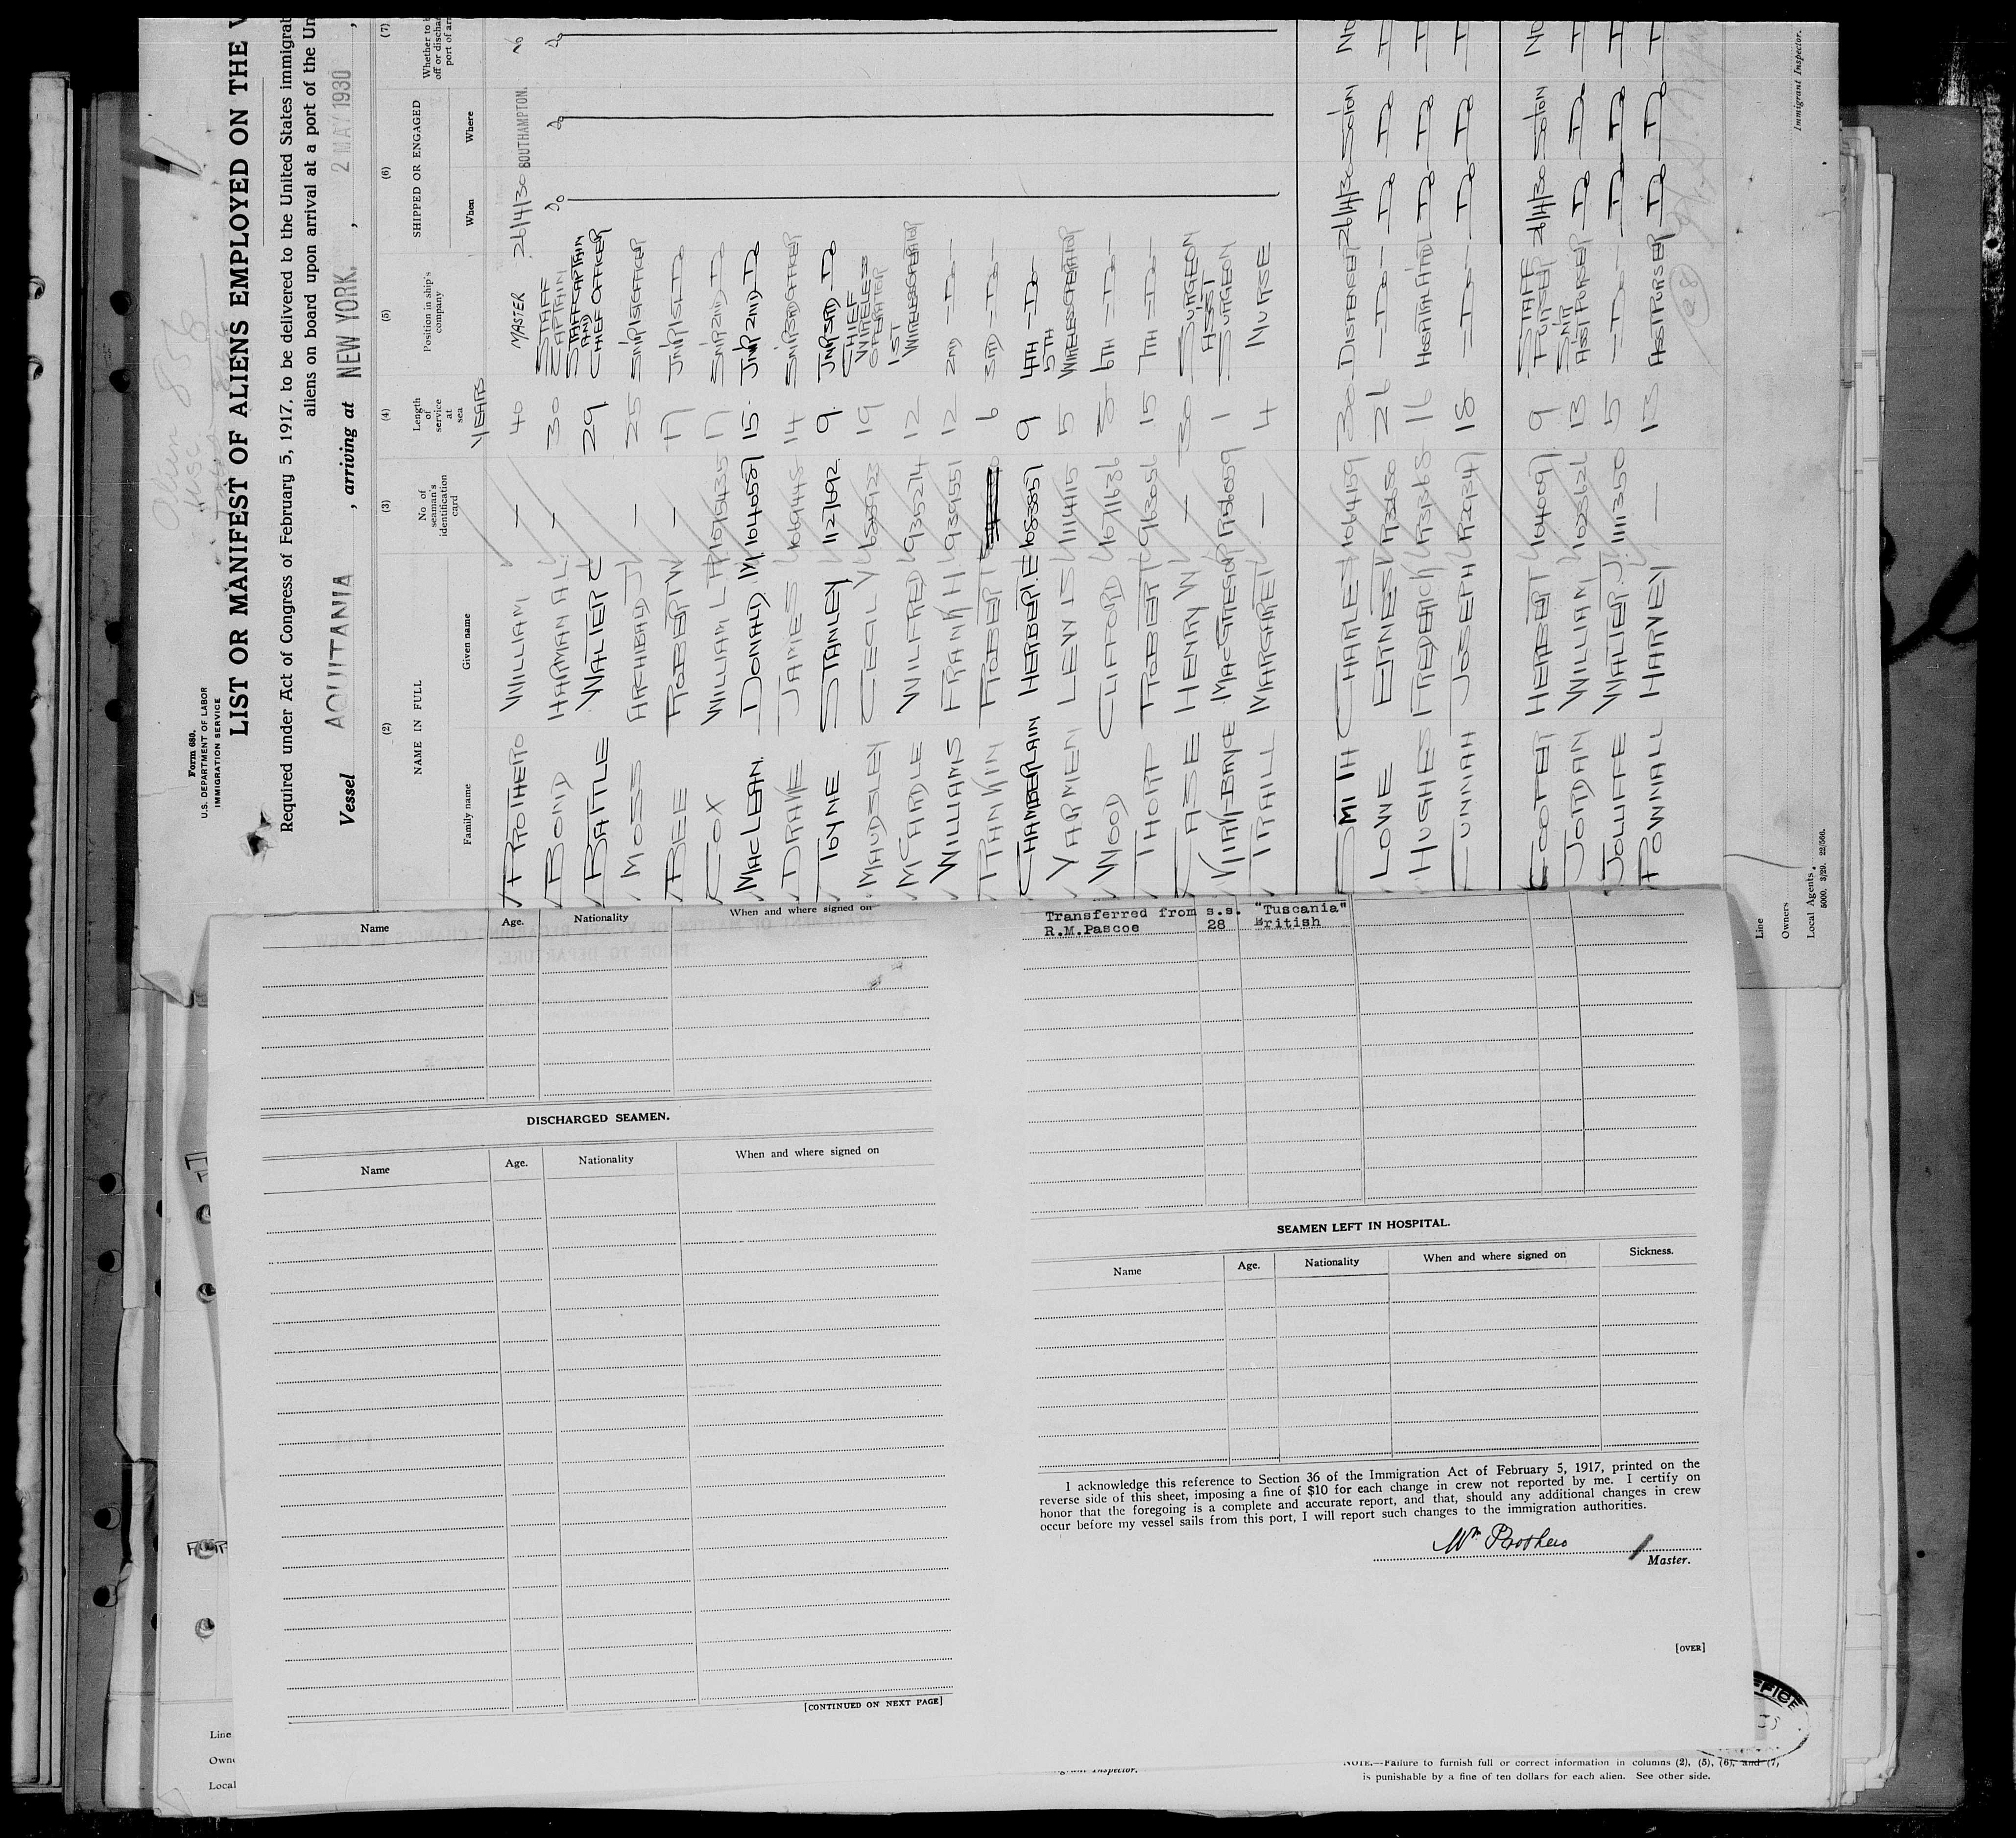 Form 680.
U. S. DEPARTMENT OF LABOR
IMMIGRATION SERVICE
LIST OR MANIFEST OF ALIENS EMPLOYED ON THE
Required under Act of Congress of February 5, 1917, to be delivered to the United States immigrat
aliens on board upon arrival at a port of the Un
Vessel AQUITANIA, arriving at NEW YORK, 2 MAY 1930,
(2) (3) (4) (5) (6) (7)
NAME IN FULL
Family name Given name
No of seaman's identification card
Length of service at sea
Position in ship's company
SHIPPED OR ENGAGED
When Where
Whether to b
off or dischar
port of ar
YEARS
PROTHERO WILLIAM — 40 MASTER 26/4/30 SOUTHAMPTON. No
BOND HARMAN A.L. — 30 STAFF CAPTAIN Do Do Do
BATTLE WALTER C 29 STAFF CAPTAIN AND CHIEF OFFICER
MOSS ARCHIBALD J — 25 SNR 1ST OFFICER
BEE ROBERT W — 17 JNR 1ST -Do
COX WILLIAM L.P. 17 SNR 2ND -Do
MACLEAN. DONALD M 1040589 15. JNR 2ND -Do
DRAKE JAMES 14 SNR 3RD OFFICER
TOYNE STANLEY 1127692. 9. JNR 3RD -Do
MAUDSLEY CECIL V 19 CHIEF WIRELESS OPERATOR
MCARDLE WILFRED 935274 12 1ST WIRELESS OPERATOR
WILLIAMS FRANK H 939551 12 2ND —Do—
RANKIN ROBERT 6 3RD —Do—
CHAMBERLAIN HERBERT. E 1083857 9 4TH —Do—
YARMEN LEWIS 1114115 5 5TH WIRELESS OPERATOR
WOOD CLIFFORD 1071636 6TH —Do—
THORP ROBERT 963056 15 7TH —Do—
CASE HENRY W — 30 SURGEON
KIRK-BAKE MACGREGOR 1 ASSIST SURGEON
TRAILL MARGARET — 4 NURSE
SMITH CHARLES 1064159 30 DISPENSER 26/4/30 Soton No
LOWE ERNEST 26 —Do— —Do —Do
HUGHES FREDERICK 16 HOSPITAL ATTDT —Do —Do
CUNNAH JOSEPH 18 —Do— —Do —Do
COOTER HERBERT 1040097 9 STAFF PURSER 26/4/30 Soton No
JORDAN WILLIAM 13 SNR ASST PURSER —Do —Do
JOLLIFFE WALTER. J. 1111350 5 —Do— —Do —Do
POWNALL HARVEY — 13 ASST PURSER —Do —Do
28
Immigrant Inspector.
Line
Owners
Local Agents.
5000. 3/29. 22/566.
Name Age. Nationality When and where signed on
DISCHARGED SEAMEN.
Name Age. Nationality When and where signed on
[CONTINUED ON NEXT PAGE]
Transferred from s.s. "Tuscania"
R.M.Pascoe 28 British
SEAMEN LEFT IN HOSPITAL.
Name Age. Nationality When and where signed on Sickness.
I acknowledge this reference to Section 36 of the Immigration Act of February 5, 1917, printed on the
reverse side of this sheet, imposing a fine of $10 for each change in crew not reported by me. I certify on
honor that the foregoing is a complete and accurate report, and that, should any additional changes in crew
occur before my vessel sails from this port, I will report such changes to the immigration authorities.
Wm Prothero
Master.
[OVER]
Line
Owne
Local
Inspector.
NOTE.—Failure to furnish full or correct information in columns (2), (5), (6), and (7)
is punishable by a fine of ten dollars for each alien. See other side.
FFICE